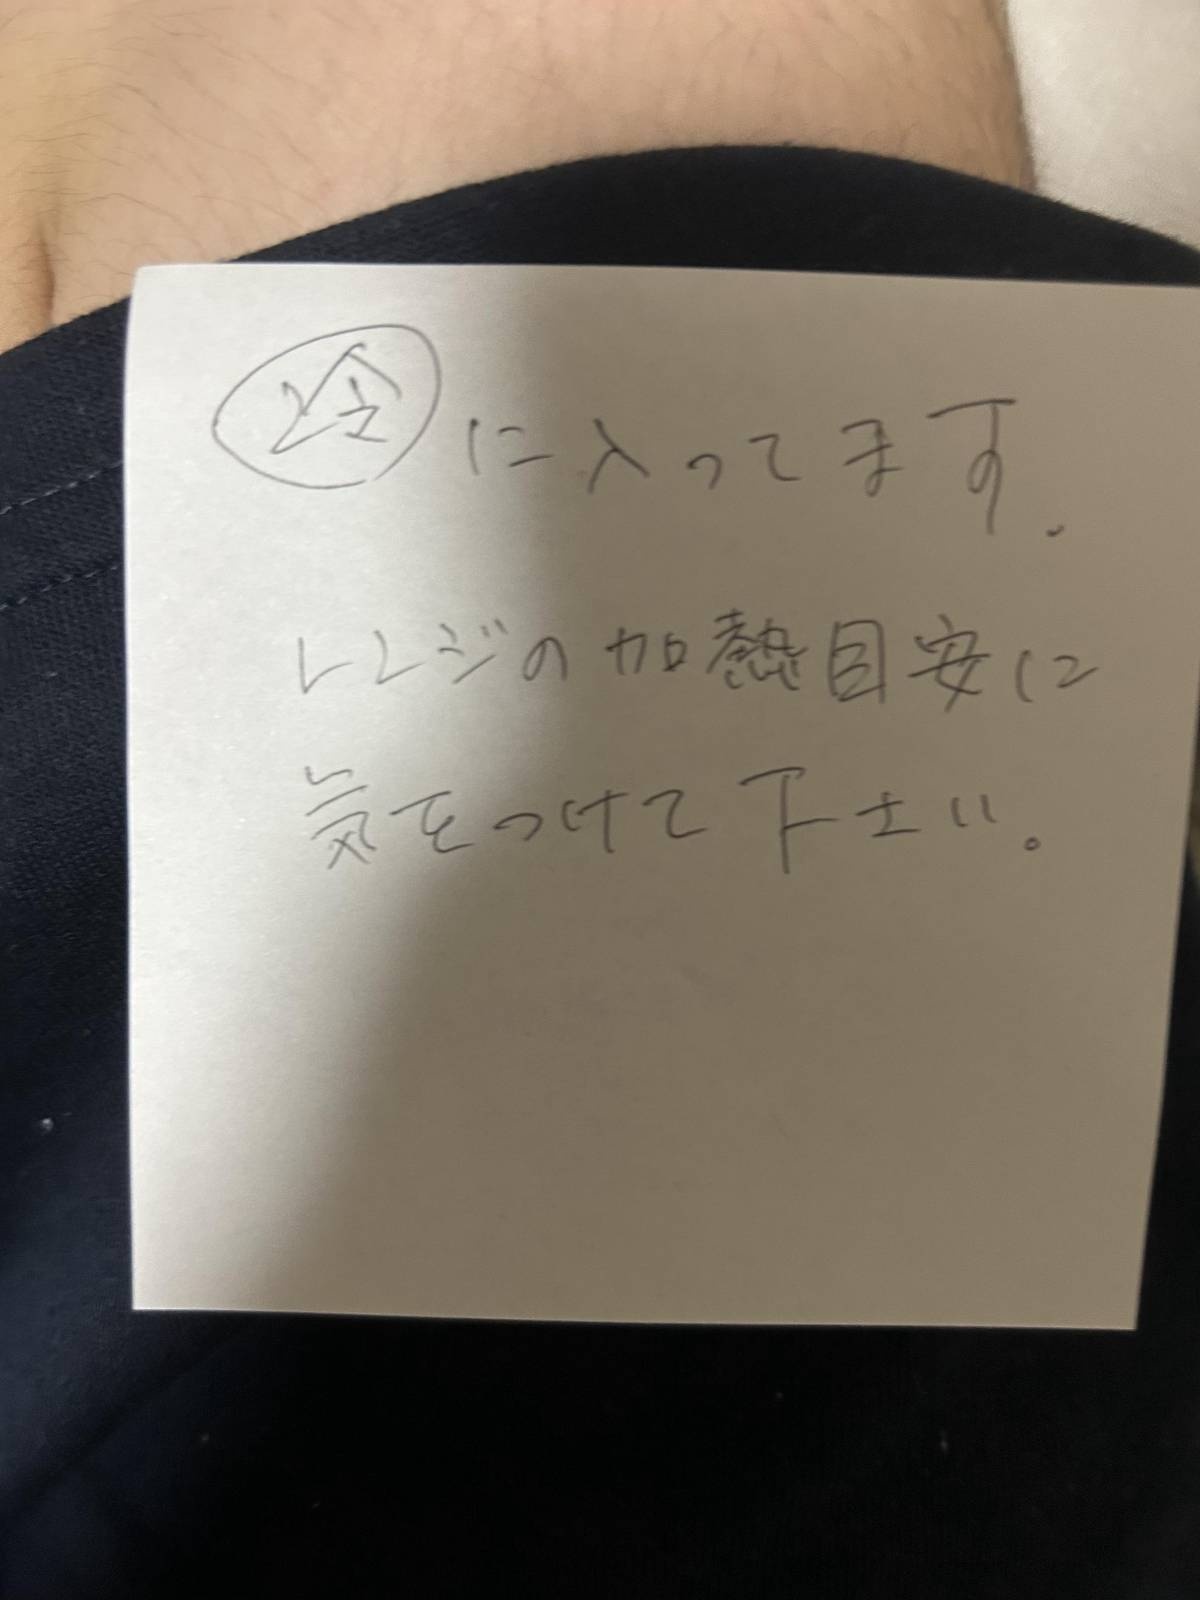 冷に入ってます.
レンジの加熱目安に
気をつけて下さい。